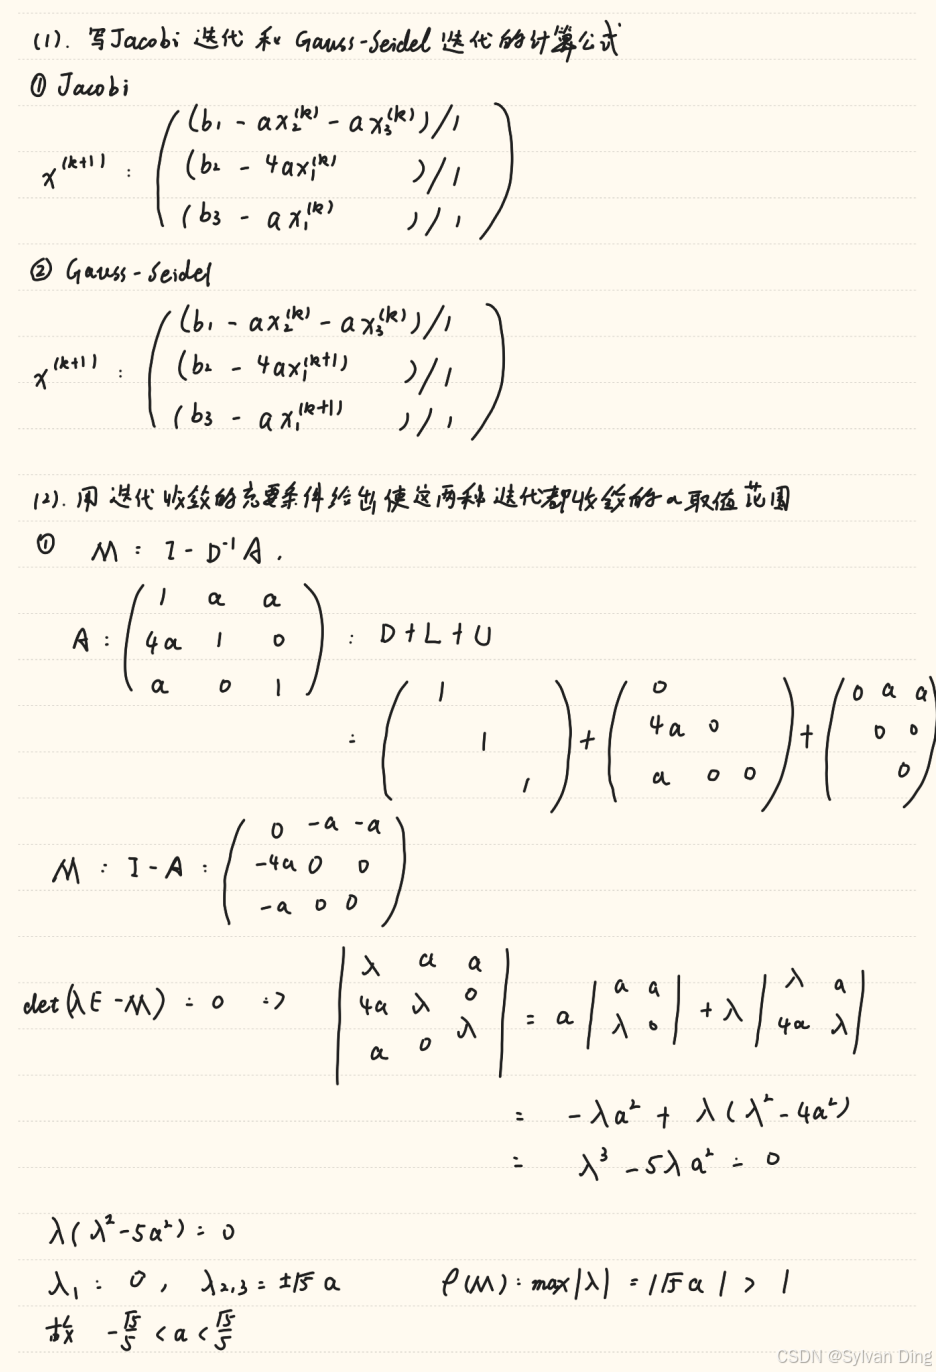 (1). 写Jacobi 迭代 和 Gauss-Seidel 迭代的计算公式
① Jacobi
x^(k+1) = ( (b₁ - ax₂^(k) - ax₃^(k))/1
(b₂ - 4ax₁^(k) )/1
(b₃ - ax₁^(k) )/1 )
② Gauss-Seidel
x^(k+1) = ( (b₁ - ax₂^(k) - ax₃^(k))/1
(b₂ - 4ax₁^(k+1) )/1
(b₃ - ax₁^(k+1) )/1 )
(2). 用 迭代收敛的充要条件给出使这两种迭代都收敛的a取值范围
① M = I - D⁻¹A .
A = ( 1 a a
4a 1 0
a 0 1 ) = D + L + U
= ( 1
1
1 ) + ( 0
4a 0
a 0 0 ) + ( 0 a a
0 0
0 )
M = I - A = ( 0 -a -a
-4a 0 0
-a 0 0 )
det(λE - M) = 0 => | λ a a
4a λ 0
a 0 λ | = a | a a
λ 0 | + λ | λ a
4a λ |
= -λa² + λ(λ² - 4a²)
= λ³ - 5λa² = 0
λ(λ² - 5a²) = 0
λ₁ = 0, λ₂,₃ = ±√5 a ρ(M) = max|λ| = |√5 a| > 1
故 -√5/5 < a < √5/5
CSDN @Sylvan Ding